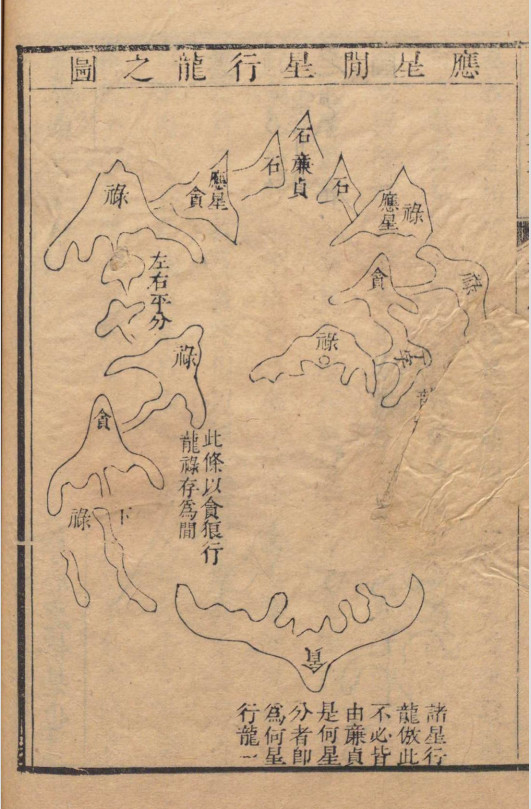 應星間星行龍之圖
石
廉貞
石
石
祿
應星
應星
貪
祿
貪
祿
左右平分
祿
丁字
祿
貪
此條以貪狼行
龍祿存為間
下
祿
貪
諸星行
龍倣此
不必皆
由廉貞
是何星
分者卽
為何星
行龍一